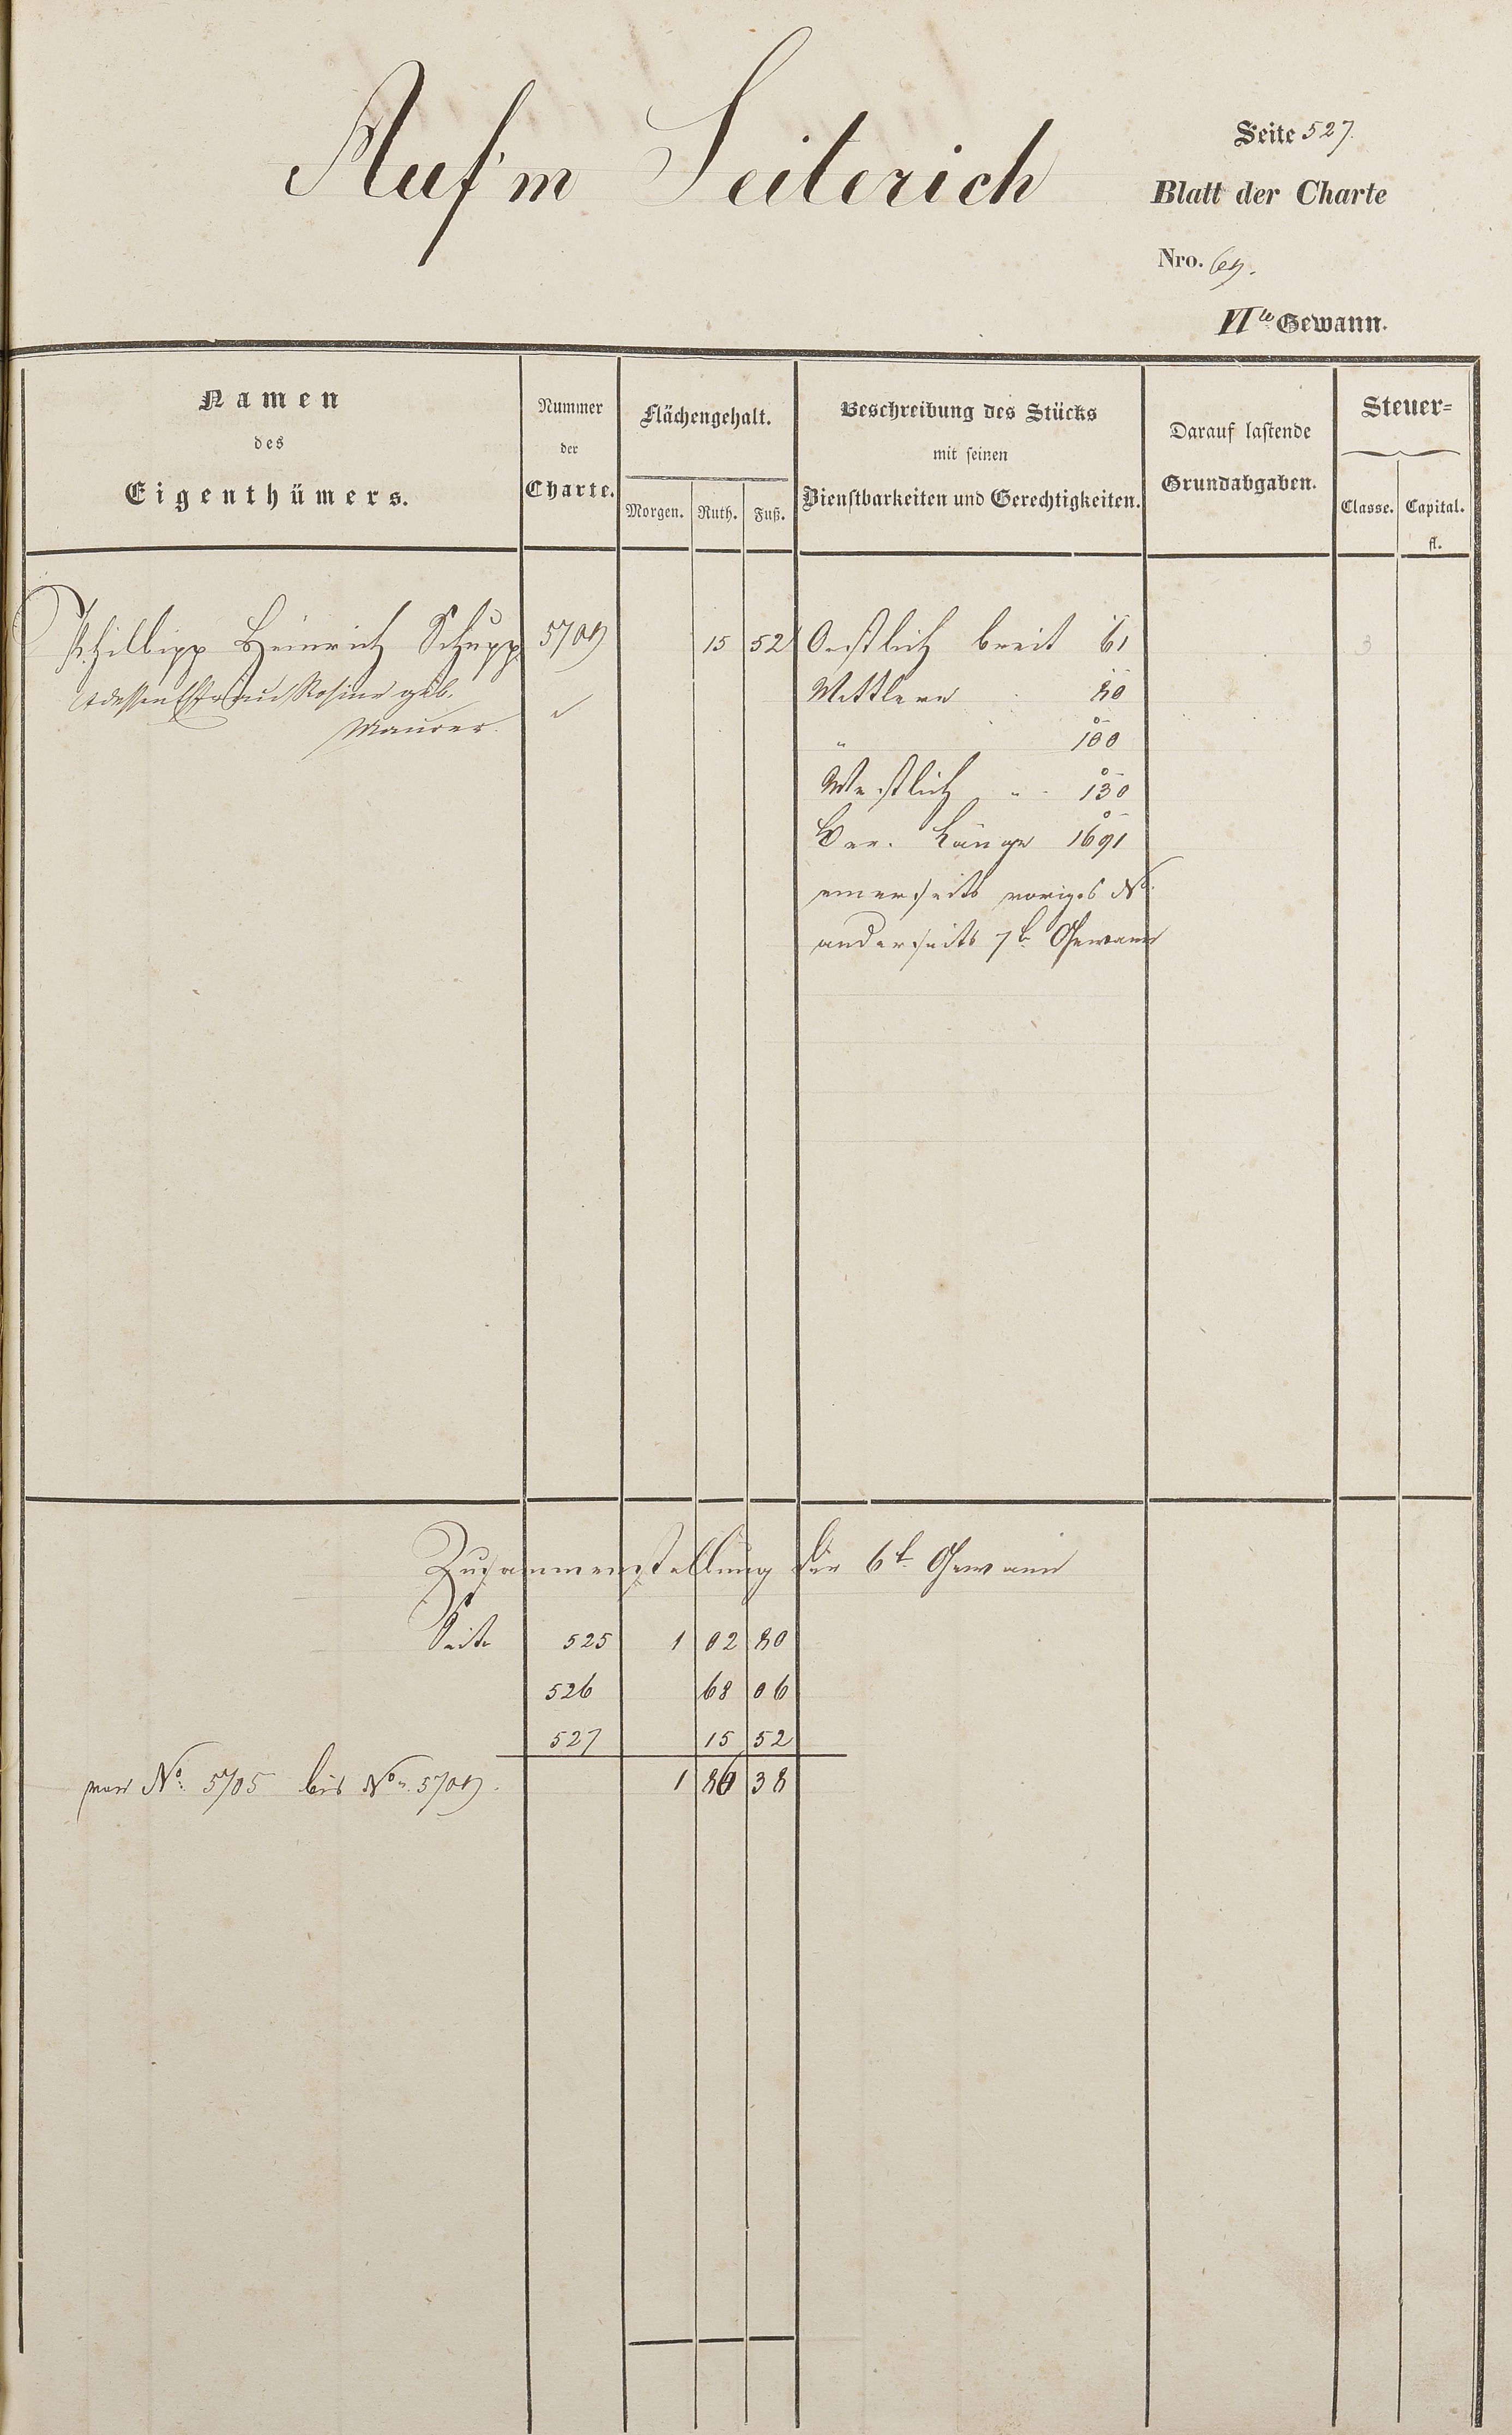 Auf'm Seiterich
Seite 527.
Blatt der Charte
Nro. 69.
VIte Gewann.
Namen
des
Eigenthümers.
Nummer
der
Charte.
Flächengehalt.
Morgen. Ruth. Fuß.
Beschreibung des Stücks
mit seinen
Dienstbarkeiten und Gerechtigkeiten.
Darauf lastende
Grundabgaben.
Steuer=
Classe. Capital.
fl.
Phillipp Heinrich Schupp 5709 15 52 Oestlich breit 61
dessen Ehefrau Rosine geb. Mittlere 80
Maurer.
" 100
Westlich " 130
Ver. Länge 1691
einerseits voriges No.
anderseits 7te Gewann
3
Zusammenstellung der 6te Gewann
Seite 525 1 02 80
526 68 06
527 15 52
von No. 5705 bis No. 5709. 1 86 38